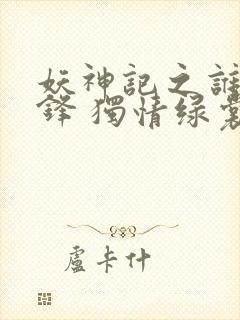 妖神記之誰
鋒 獨情綠裳
盧卡什